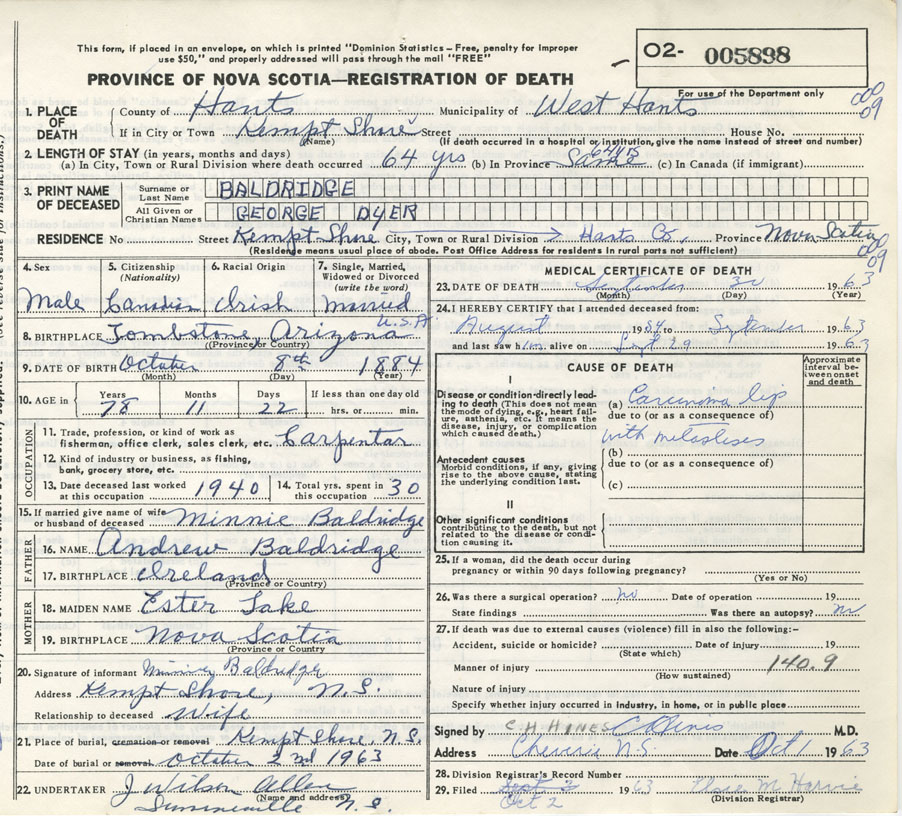 This form, if placed in an envelope, on which is printed "Dominion Statistics – Free, penalty for improper
use $50," and properly addressed will pass through the mail "FREE"
O2- 005898
For use of the Department only
PROVINCE OF NOVA SCOTIA—REGISTRATION OF DEATH
000
09
1. PLACE OF DEATH
County of Hants Municipality of West Hants
If in City or Town Kempt Shore Street House No.
(Name) (If death occurred in a hospital or institution, give the name instead of street and number)
2. LENGTH OF STAY (in years, months and days)
(a) In City, Town or Rural Division where death occurred 64 yrs (b) In Province Same 64 yrs (c) In Canada (if immigrant)
3. PRINT NAME OF DECEASED
Surname or Last Name BALDRIDGE
All Given or Christian Names GEORGE DYER
RESIDENCE No Street Kempt Shore City, Town or Rural Division Hants Co, Province Nova Scotia
(Residence means usual place of abode. Post Office Address for residents in rural parts not sufficient)
000
09
4. Sex
Male
5. Citizenship
(Nationality)
Canadian
6. Racial Origin
Irish
7. Single, Married,
Widowed or Divorced
(write the word)
married
8. BIRTHPLACE Tombstone, Arizona U.S.A.
(Province or Country)
9. DATE OF BIRTH October 8th 1884
(Month) (Day) (Year)
10. AGE in
Years Months Days If less than one day old
78 11 22 hrs. or min.
OCCUPATION
11. Trade, profession, or kind of work as
fisherman, office clerk, sales clerk, etc. Carpentar
12. Kind of industry or business, as fishing,
bank, grocery store, etc.
13. Date deceased last worked
at this occupation 1940
14. Total yrs. spent in
this occupation 30
15. If married give name of wife
or husband of deceased Minnie Baldridge
FATHER
16. NAME Andrew Baldridge
17. BIRTHPLACE Ireland
(Province or Country)
MOTHER
18. MAIDEN NAME Ester Lake
19. BIRTHPLACE Nova Scotia
(Province or Country)
20. Signature of informant Minnie Baldridge
Address Kempt Shore, N.S.
Relationship to deceased Wife
21. Place of burial, cremation or removal Kempt Shore, N.S.
Date of burial or removal October 2nd 1963
22. UNDERTAKER J Wilson Allen
(Name and address)
Summerville N.S.
MEDICAL CERTIFICATE OF DEATH
23. DATE OF DEATH September 30 1963
(Month) (Day) (Year)
24. I HEREBY CERTIFY that I attended deceased from:
August 19 to September 1963
and last saw him alive on Sept 29 1963
CAUSE OF DEATH
Approximate
interval be-
tween onset
and death
I
Disease or condition directly lead-
ing to death (This does not mean
the mode of dying, e.g., heart failure,
asthenia, etc. It means the
disease, injury, or complication
which caused death.)
(a) Carcinoma lip
due to (or as a consequence of)
with metastases
Antecedent causes
Morbid conditions, if any, giving
rise to the above cause, stating
the underlying condition last.
(b)
due to (or as a consequence of)
(c)
II
Other significant conditions
contributing to the death, but not
related to the disease or condi-
tion causing it.
25. If a woman, did the death occur during
pregnancy or within 90 days following pregnancy?
(Yes or No)
26. Was there a surgical operation? no Date of operation 19
State findings Was there an autopsy? no
27. If death was due to external causes (violence) fill in also the following:–
Accident, suicide or homicide? Date of injury 19
(State which)
Manner of injury 140.9
(How sustained)
Nature of injury
Specify whether injury occurred in industry, in home, or in public place
Signed by C.H. HINES M.D.
Address N.S. Date Oct 1 1963
28. Division Registrar's Record Number
29. Filed Sept 2 1963 Elsie M Harvie
Oct 2 (Division Registrar)